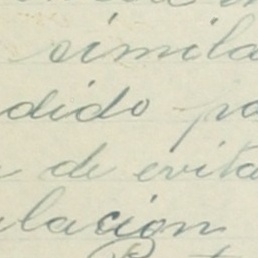 simila
dido pa
de evita
lacion